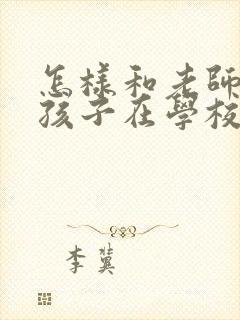 怎樣和老師
孩子在學校
李冀